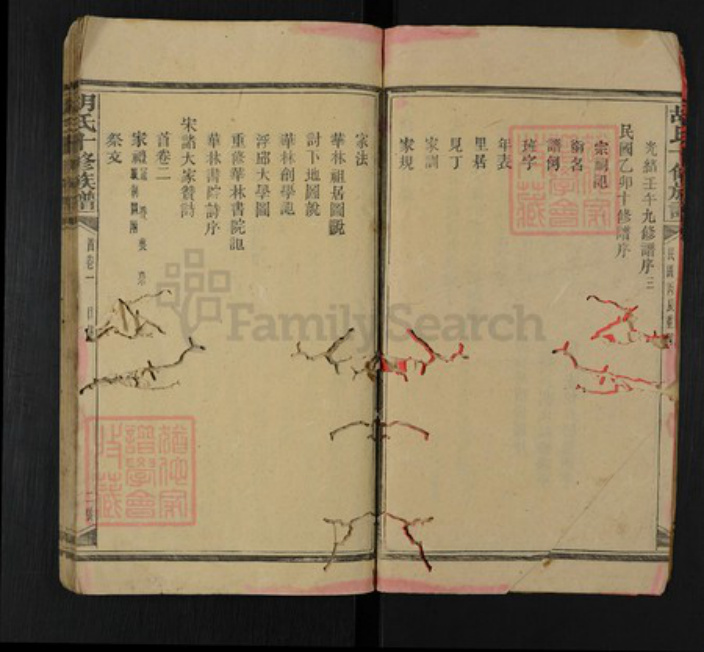 光緒壬午九修譜序三
民國乙卯十修譜序
宗祠記
廟名
譜例
班字
年表
見丁
里居
家訓
家規
家法
華林祖居圖說
討下地圖說
華林創學記
浮邱大學圖
重修華林書院記
華林書院詩序
宋諸大家贊詩
首卷二
家禮冠 婚 喪 祭
祭文
胡氏十修族譜
首卷一
FamilySearch